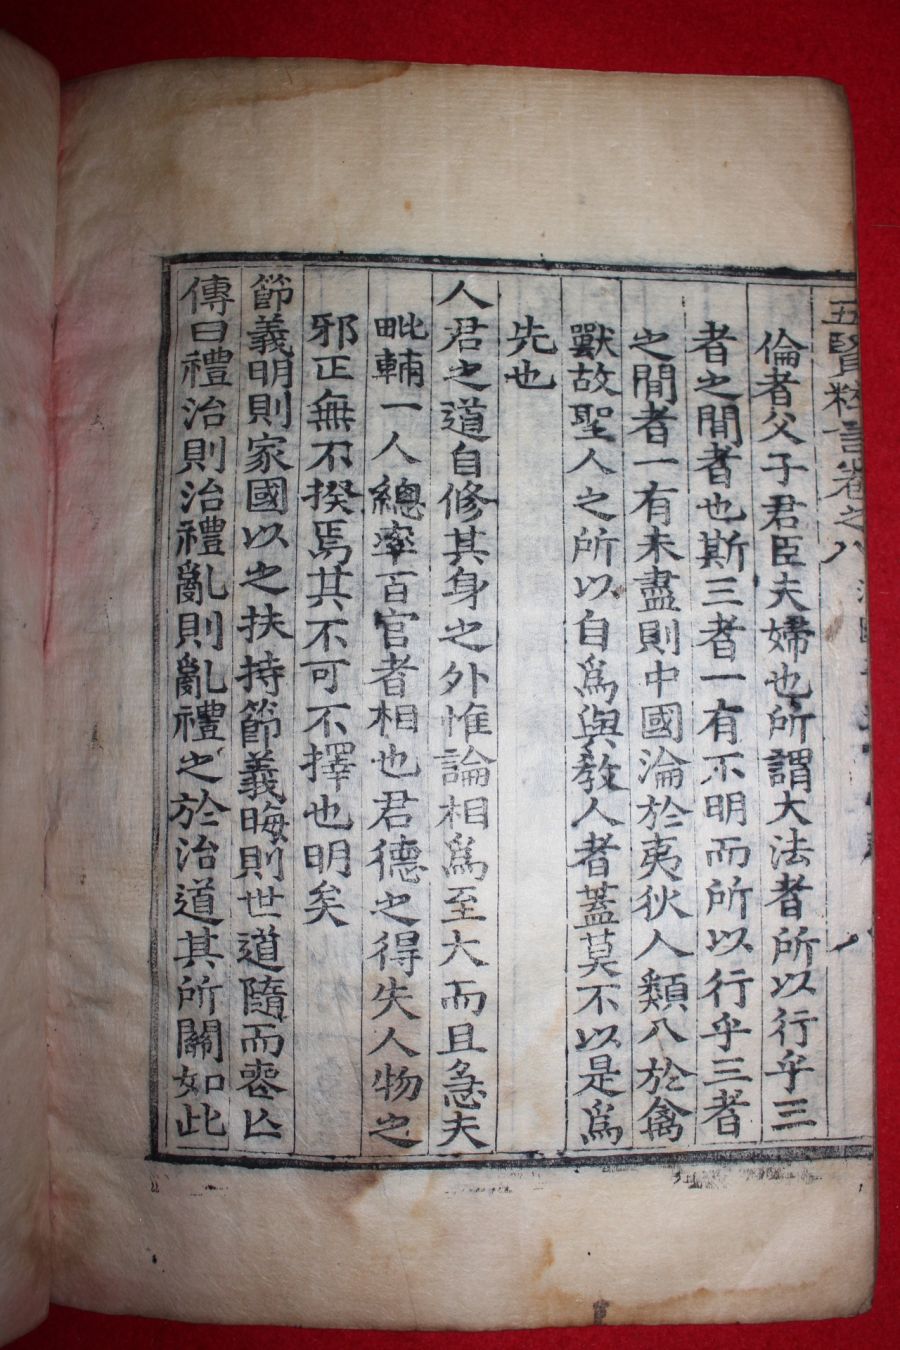 五賢粹言卷之八
倫者父子君臣夫婦也所謂大法者所以行乎三
者之間者也斯三者一有不明而所以行乎三者
之間者一有未盡則中國淪於夷狄人類入於禽
獸故聖人之所以自爲與教人者蓋莫不以是爲
先也
人君之道自修其身之外惟論相爲至大而且急夫
毗輔一人總率百官者相也君德之得失人物之
邪正無不揆焉其不可不擇也明矣
節義明則家國以之扶持節義晦則世道隨而喪亾
傳曰禮治則治禮亂則亂禮之於治道其所關如此